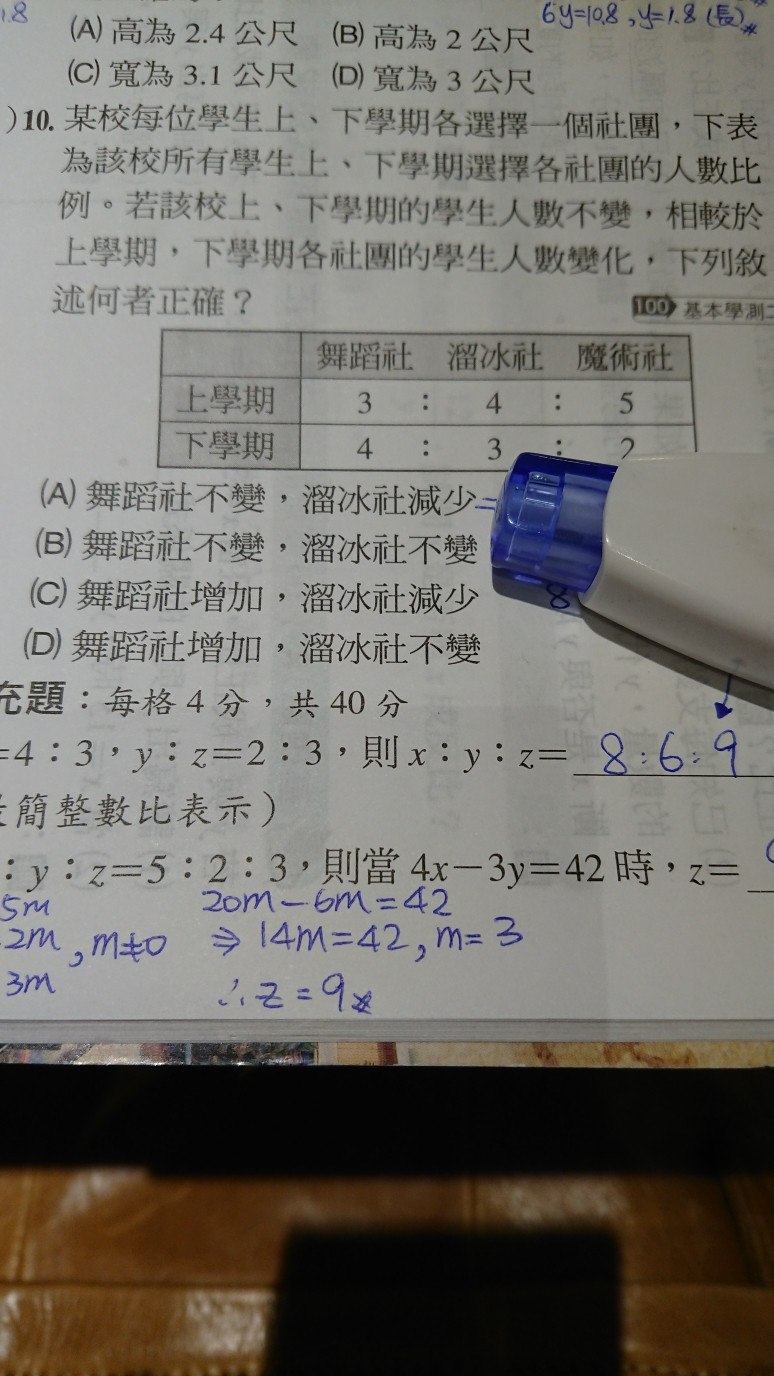 1.8
6y=10.8 , y=1.8 (長)
(A) 高為 2.4 公尺 (B) 高為 2 公尺
(C) 寬為 3.1 公尺 (D) 寬為 3 公尺
)10. 某校每位學生上、下學期各選擇一個社團，下表
為該校所有學生上、下學期選擇各社團的人數比
例。若該校上、下學期的學生人數不變，相較於
上學期，下學期各社團的學生人數變化，下列敘
述何者正確？
100 基本學測二
舞蹈社 溜冰社 魔術社
上學期 3 : 4 : 5
下學期 4 : 3 : 2
(A) 舞蹈社不變，溜冰社減少=
(B) 舞蹈社不變，溜冰社不變
(C) 舞蹈社增加，溜冰社減少
8
(D) 舞蹈社增加，溜冰社不變
充題：每格 4 分，共 40 分
=4：3，y：z=2：3，則 x：y：z= 8:6:9
簡整數比表示）
：y：z=5：2：3，則當 4x−3y=42 時，z=
5m 20m−6m=42
2m , m≠0 ⇒ 14m=42, m=3
3m ∴ z = 9